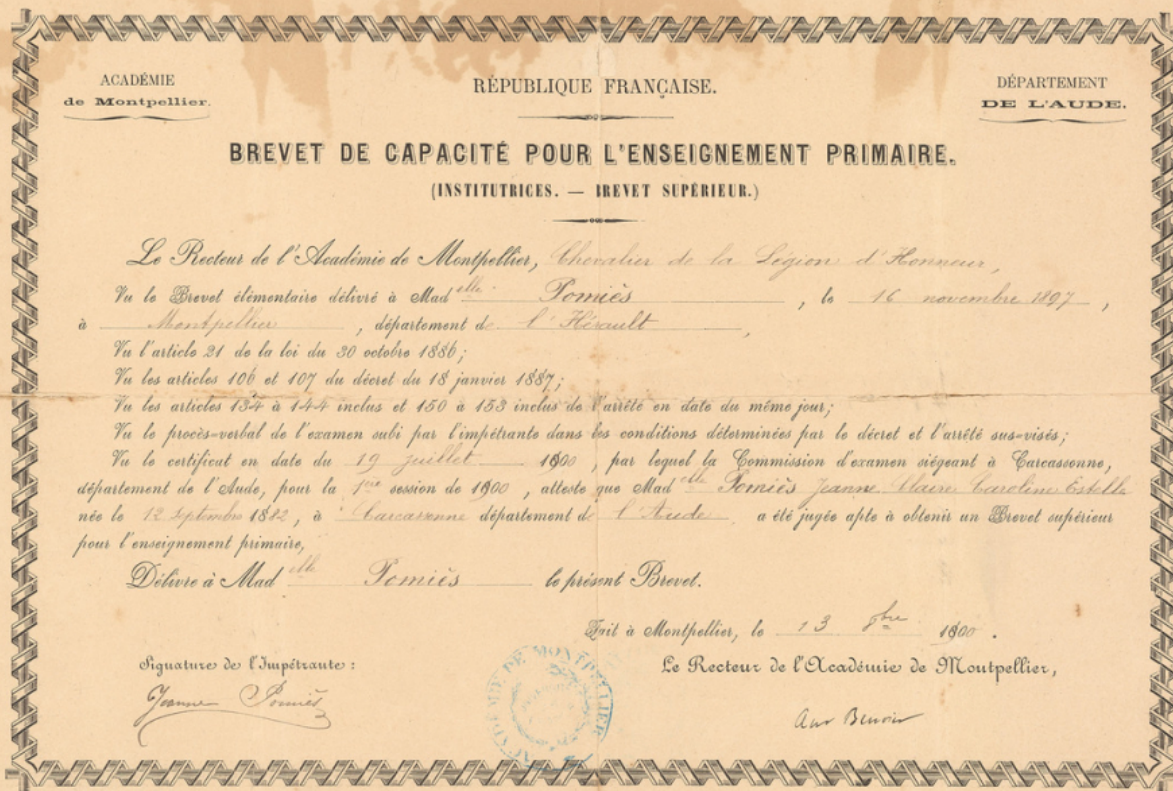 ACADÉMIE
de Montpellier.
RÉPUBLIQUE FRANÇAISE.
DÉPARTEMENT
DE L'AUDE.
BREVET DE CAPACITÉ POUR L'ENSEIGNEMENT PRIMAIRE.
(INSTITUTRICES. — BREVET SUPÉRIEUR.)
Le Recteur de l'Académie de Montpellier, Chevalier de la Légion d'Honneur,
Vu le Brevet élémentaire délivré à Mad elle Pomiès, le 16 novembre 1897,
à Montpellier, département de l'Hérault,
Vu l'article 21 de la loi du 30 octobre 1886;
Vu les articles 106 et 107 du décret du 18 janvier 1887;
Vu les articles 134 à 144 inclus et 150 à 153 inclus de l'arrêté en date du même jour;
Vu le procès-verbal de l'examen subi par l'impétrante dans les conditions déterminées par le décret et l'arrêté sus-visés;
Vu le certificat en date du 19 juillet 1900, par lequel la Commission d'examen siégeant à Carcassonne,
département de l'Aude, pour la 1ère session de 1900, atteste que Mad elle Pomiès Jeanne Claire Caroline Estelle
née le 12 Septembre 1882, à Carcassonne département de l'Aude a été jugée apte à obtenir un Brevet supérieur
pour l'enseignement primaire,
Délivre à Mad elle Pomiès le présent Brevet.
Fait à Montpellier, le 13 8bre 1900.
Signature de l'Impétrante :
Le Recteur de l'Académie de Montpellier,
Jeanne Pomiès
Ant Benoist
ACADÉMIE DE MONTPELLIER